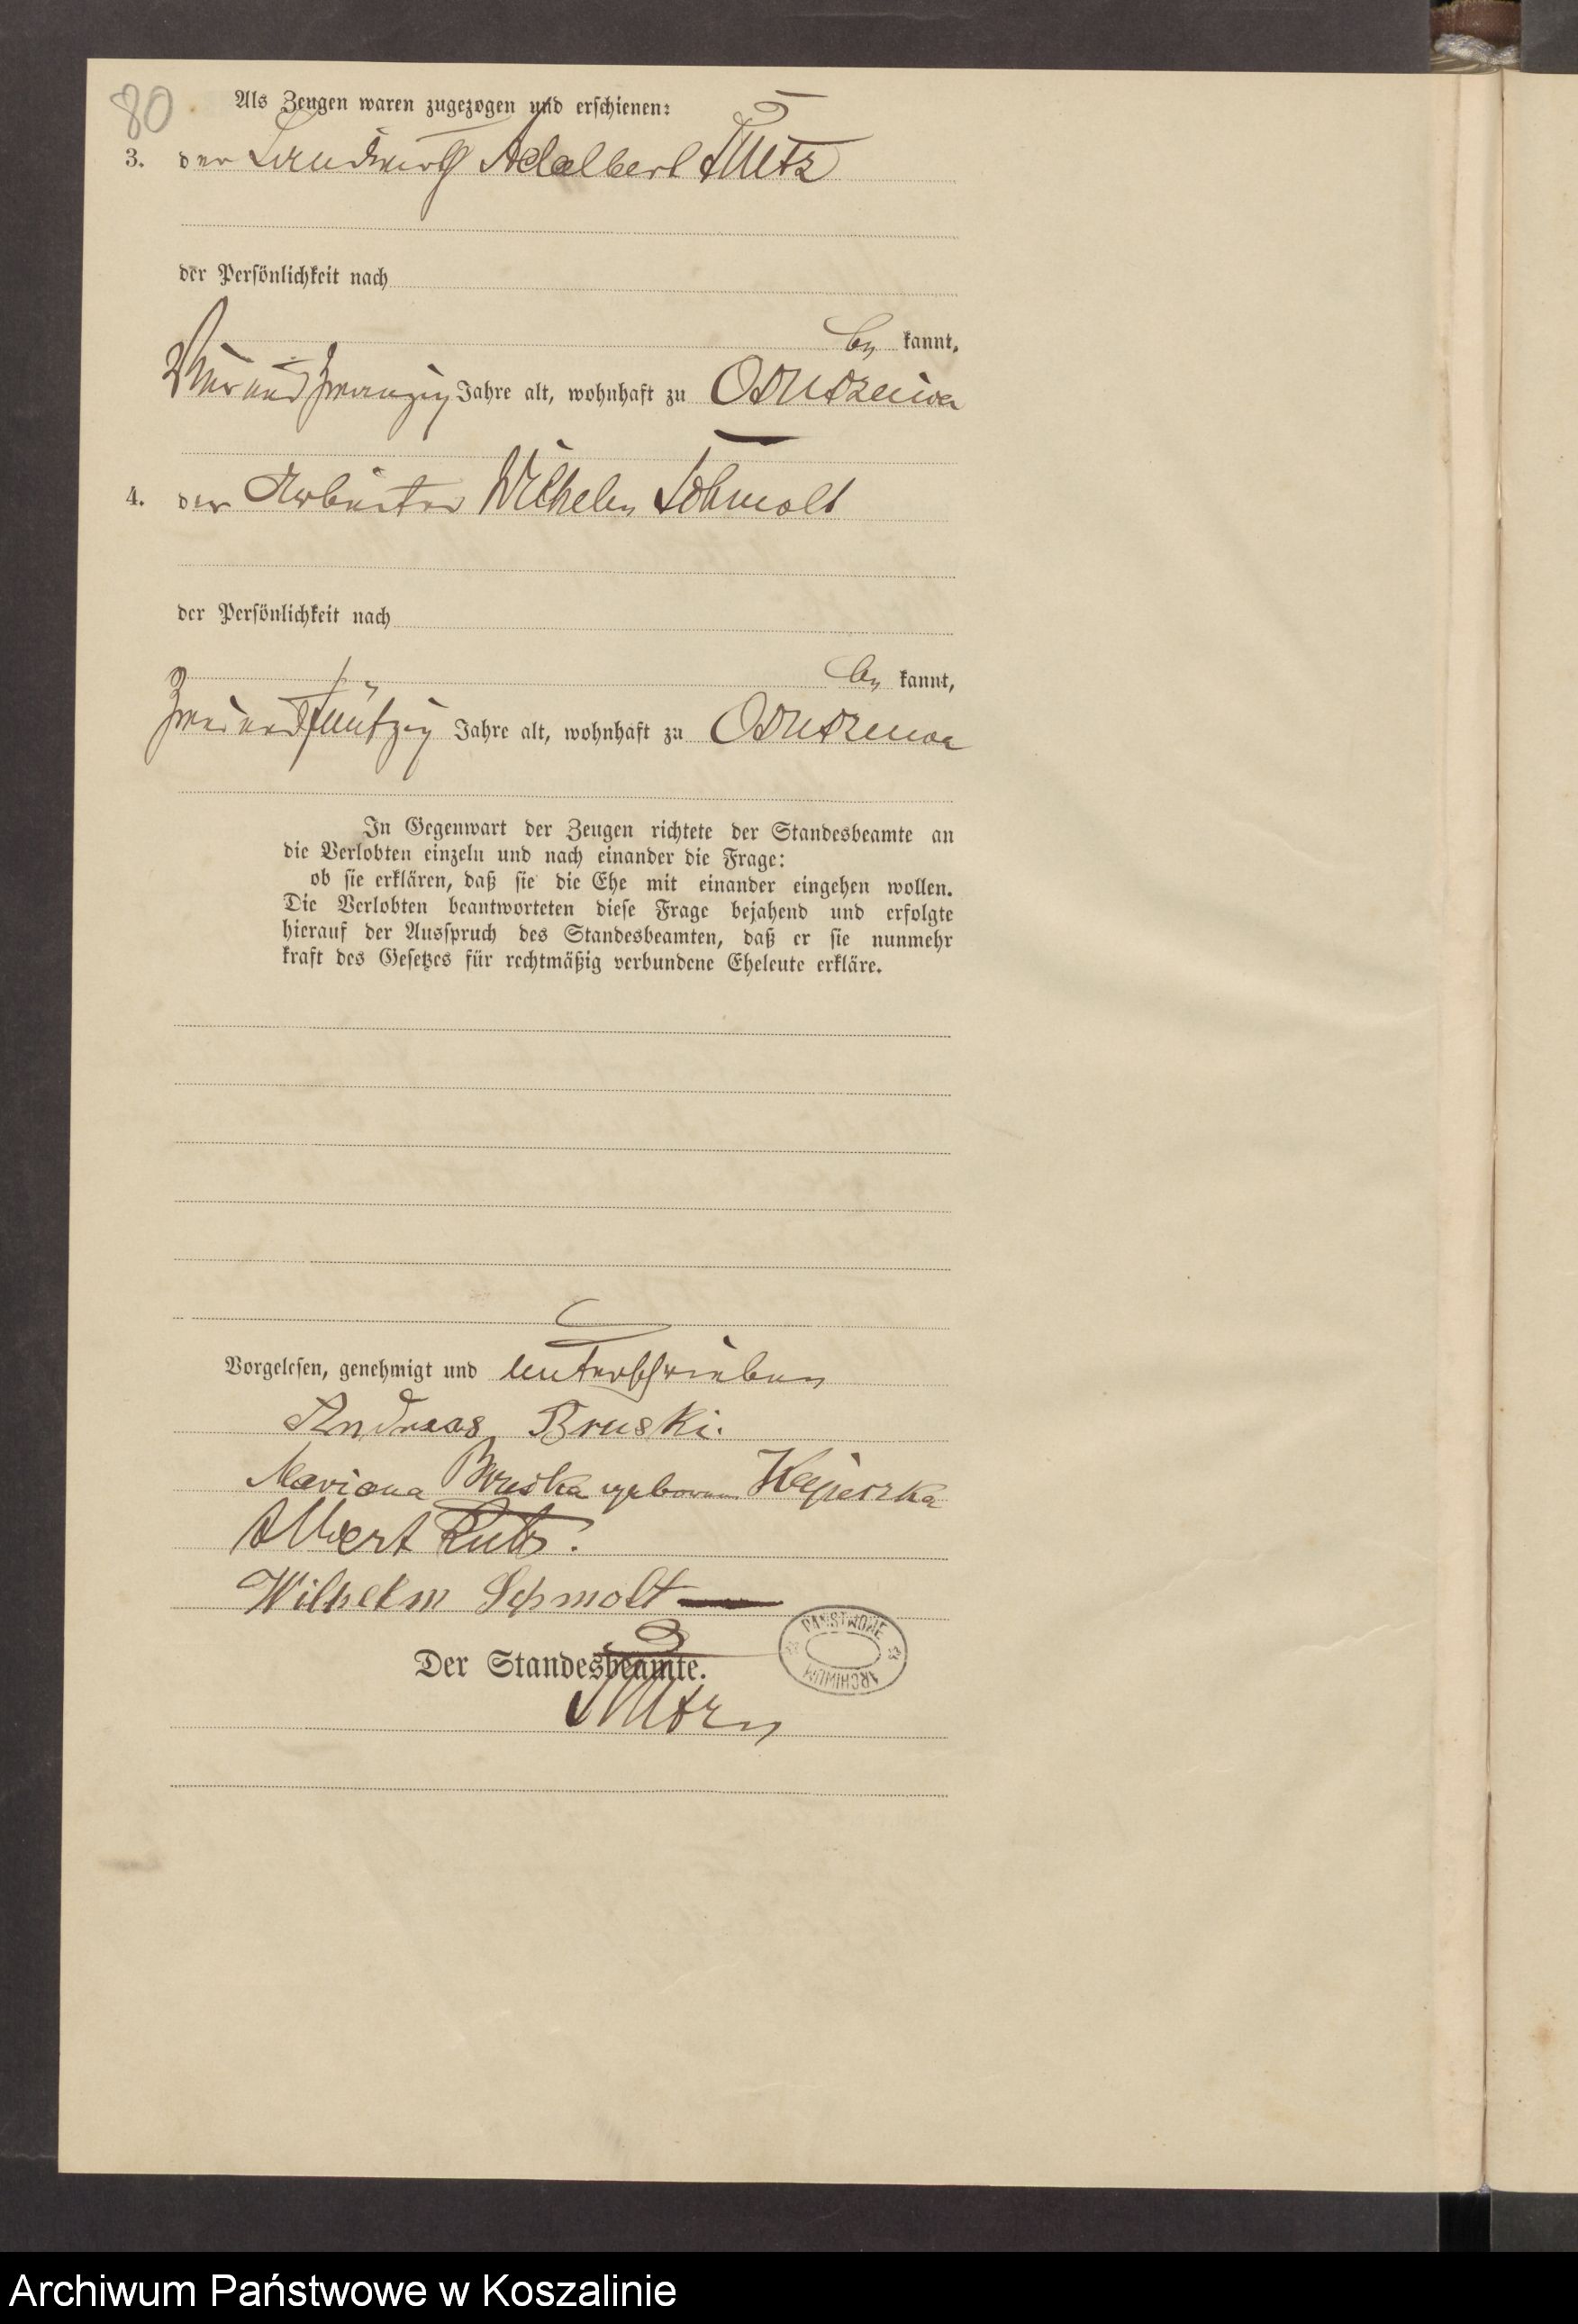 80
Als Zeugen waren zugezogen und erschienen:
3. der Landwirth Adalbert
der Persönlichkeit nach
be kannt,
Vier und zwanzig Jahre alt, wohnhaft zu
4. der Arbeiter Wilhelm Schmolt
der Persönlichkeit nach
be kannt,
zwei und fünfzig Jahre alt, wohnhaft zu
In Gegenwart der Zeugen richtete der Standesbeamte an
die Verlobten einzeln und nach einander die Frage:
ob sie erklären, daß sie die Ehe mit einander eingehen wollen.
Die Verlobten beantworteten diese Frage bejahend und erfolgte
hierauf der Ausspruch des Standesbeamten, daß er sie nunmehr
kraft des Gesetzes für rechtmäßig verbundene Eheleute erkläre.
Vorgelesen, genehmigt und unterschrieben
Andreas Bruski.
Mariana Bruska geborene
Albert
Wilhelm Schmolt
PAŃSTWOWE
ARCHIWUM
Der Standesbeamte.
Archiwum Państwowe w Koszalinie